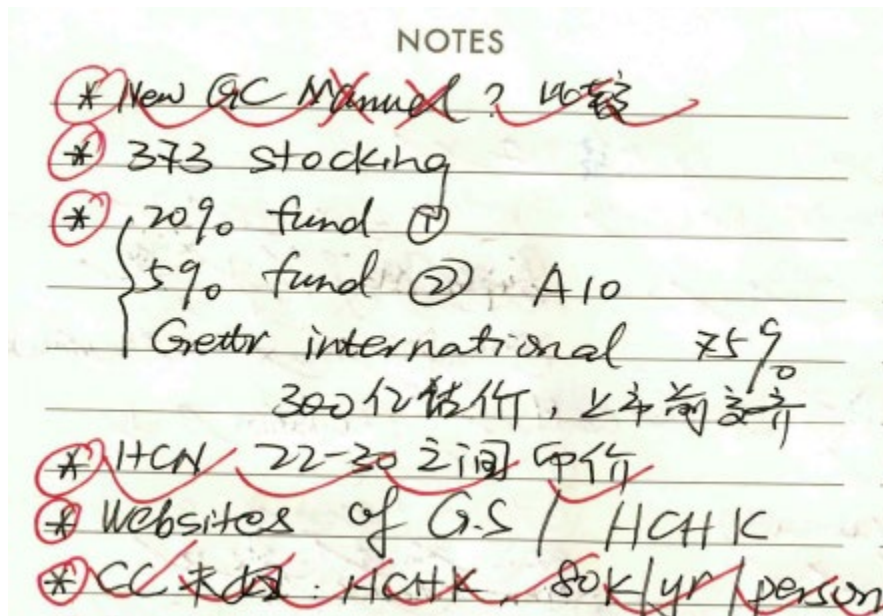 NOTES
* New GC Manual?
* 373 stocking
* 20% fund ①
5% fund ② A10
Gettr international 75%
300亿估价,上市前
* HCN 22-30 之间 印价
* Websites of G.S / HCHK
* CC HCHK, 80K/yr/person